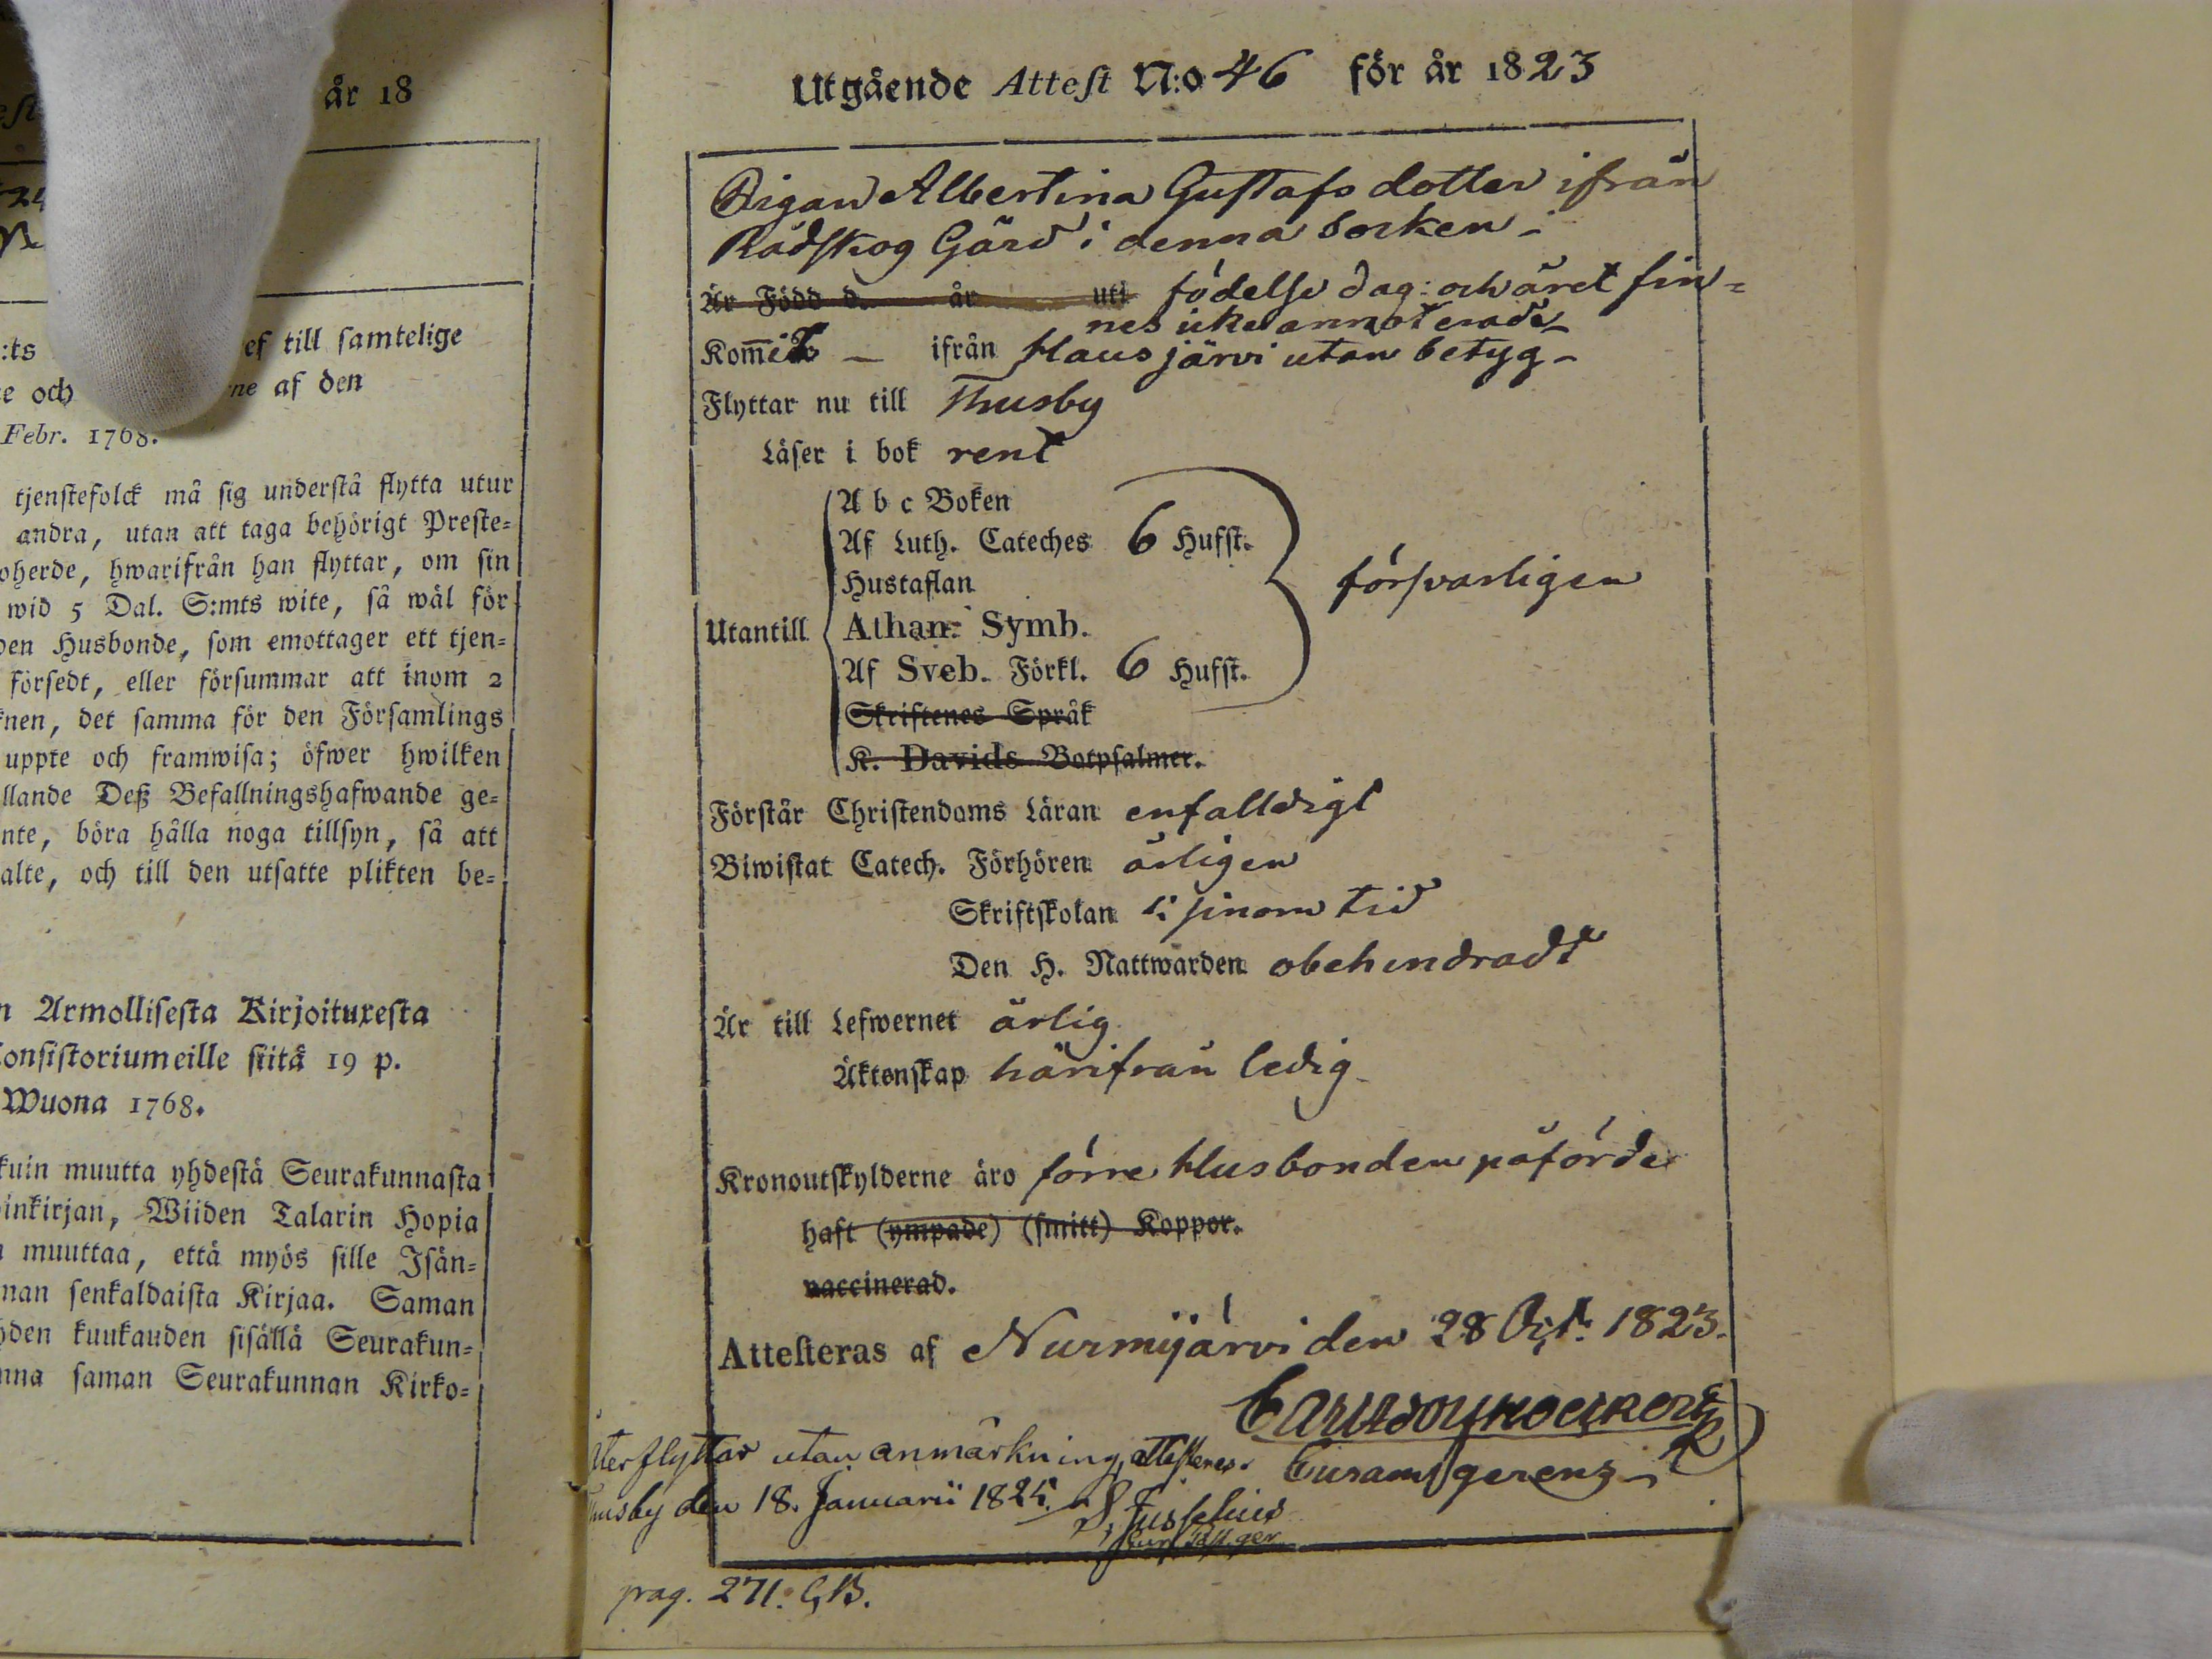 år 18
:ts ef till samtelige
e och ne af den
Febr. 1768.
tjenstefolck må sig understå flytta utur
andra, utan att taga behörigt Preste-
oherde, hwarifrån han flyttar, om sin
wid 5 Dal. S:mts wite, så wäl för
den Husbonde, som emottager ett tjen-
försedt, eller försummar att inom 2
nen, det samma för den Församlings
uppte och framwisa; öfwer hwilken
llande Deß Befallningshafwande ge-
nte, böra hålla noga tillsyn, så att
alte, och till den utsatte plikten be-
n Armollisesta Kirjoituxesta
onsistoriumeille siitä 19 p.
Wuona 1768.
kuin muutta yhdestä Seurakunnasta
inkirjan, Wiiden Talarin Hopia
muuttaa, että myös sille Isän-
nan senkaldaista Kirjaa. Saman
hden kuukauden sisällä Seurakun-
nna saman Seurakunnan Kirko-
Utgående Attest N:o 46 för år 1823
Pigan Albertina Gustafs dotter ifrån
Rådskog Gård i denna Socken
Är Född d. år uti födelse dag: och året fin=
nes icke annoterade
Kom̄it – ifrån Hausjärvi utan betyg –
Flyttar nu till Thusby
Läser i bok rent
A b c Boken
Af Luth. Cateches 6 Hufst.
Hustaflan försvarligen
Utantill Athan. Symb.
Af Sveb. Förkl. 6 Hufst.
Skriftenes Språk
K. Davids Botpsalmer.
Förstår Christendoms Läran enfalldigt
Biwistat Catech. Förhören årligen
Skriftskolan i sinom tid
Den H. Nattwarden obehindradt
Är till Lefwernet ärlig
Äktenskap härifrån ledig
Kronoutskylderne äro förre Husbonden påförde
haft (ympade) (smitt) Koppor.
vaccinerad.
Attesteras af Nurmijärvi den 28 Oct. 1823.
Curam gerens
Återflyttar utan anmärkning, attesteres.
Thusby den 18. Januarii 1825.
Cur. Past. ger.
pag. 271. G,B.